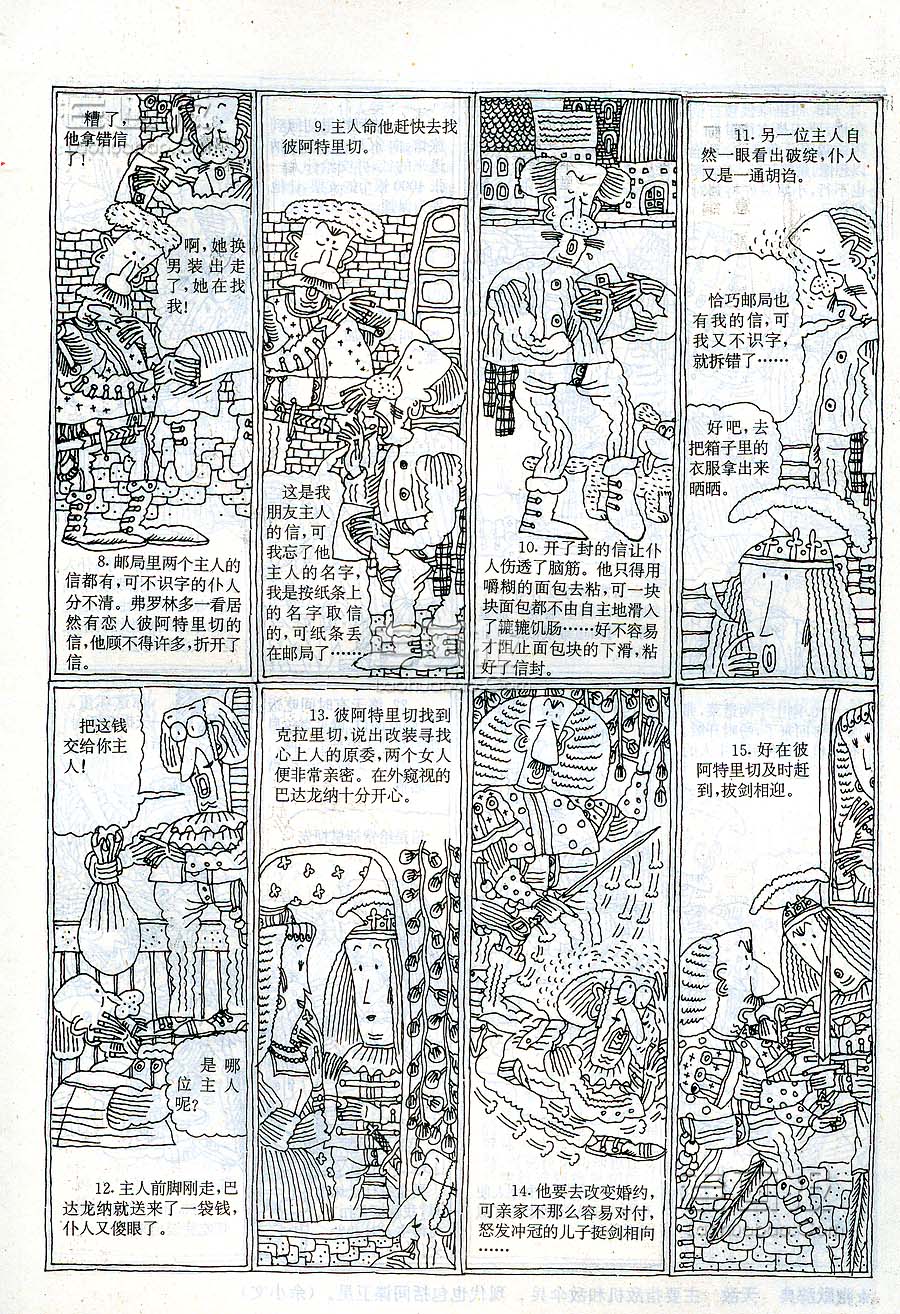 糟了，
他拿错信
了！
啊，她换
男装出走
了，她在找
我！
8. 邮局里两个主人的
信都有，可不识字的仆人
分不清。弗罗林多一看居
然有恋人彼阿特里切的
信，他顾不得许多，折开了
信。
9. 主人命他赶快去找
彼阿特里切。
这是我
朋友主人
的信，可
我忘了他
主人的名字，
我是按纸条上
的名字取信
的，可纸条丢
在邮局了……
10. 开了封的信让仆
人伤透了脑筋。他只得用
嚼糊的面包去粘，可一块
块面包都不由自主地滑入
了辘辘饥肠……好不容易
才阻止面包块的下滑，粘
好了信封。
11. 另一位主人自
然一眼看出破绽，仆人
又是一通胡诌。
恰巧邮局也
有我的信，可
我又不识字，
就拆错了……
好吧，去
把箱子里的
衣服拿出来
晒晒。
把这钱
交给你主
人！
是哪
位主人
呢？
12. 主人前脚刚走，巴
达龙纳就送来了一袋钱，
仆人又傻眼了。
13. 彼阿特里切找到
克拉里切，说出改装寻找
心上人的原委，两个女人
便非常亲密。在外窥视的
巴达龙纳十分开心。
14. 他要去改变婚约，
可亲家不那么容易对付，
怒发冲冠的儿子挺剑相向
……
15. 好在彼
阿特里切及时赶
到，拔剑相迎。